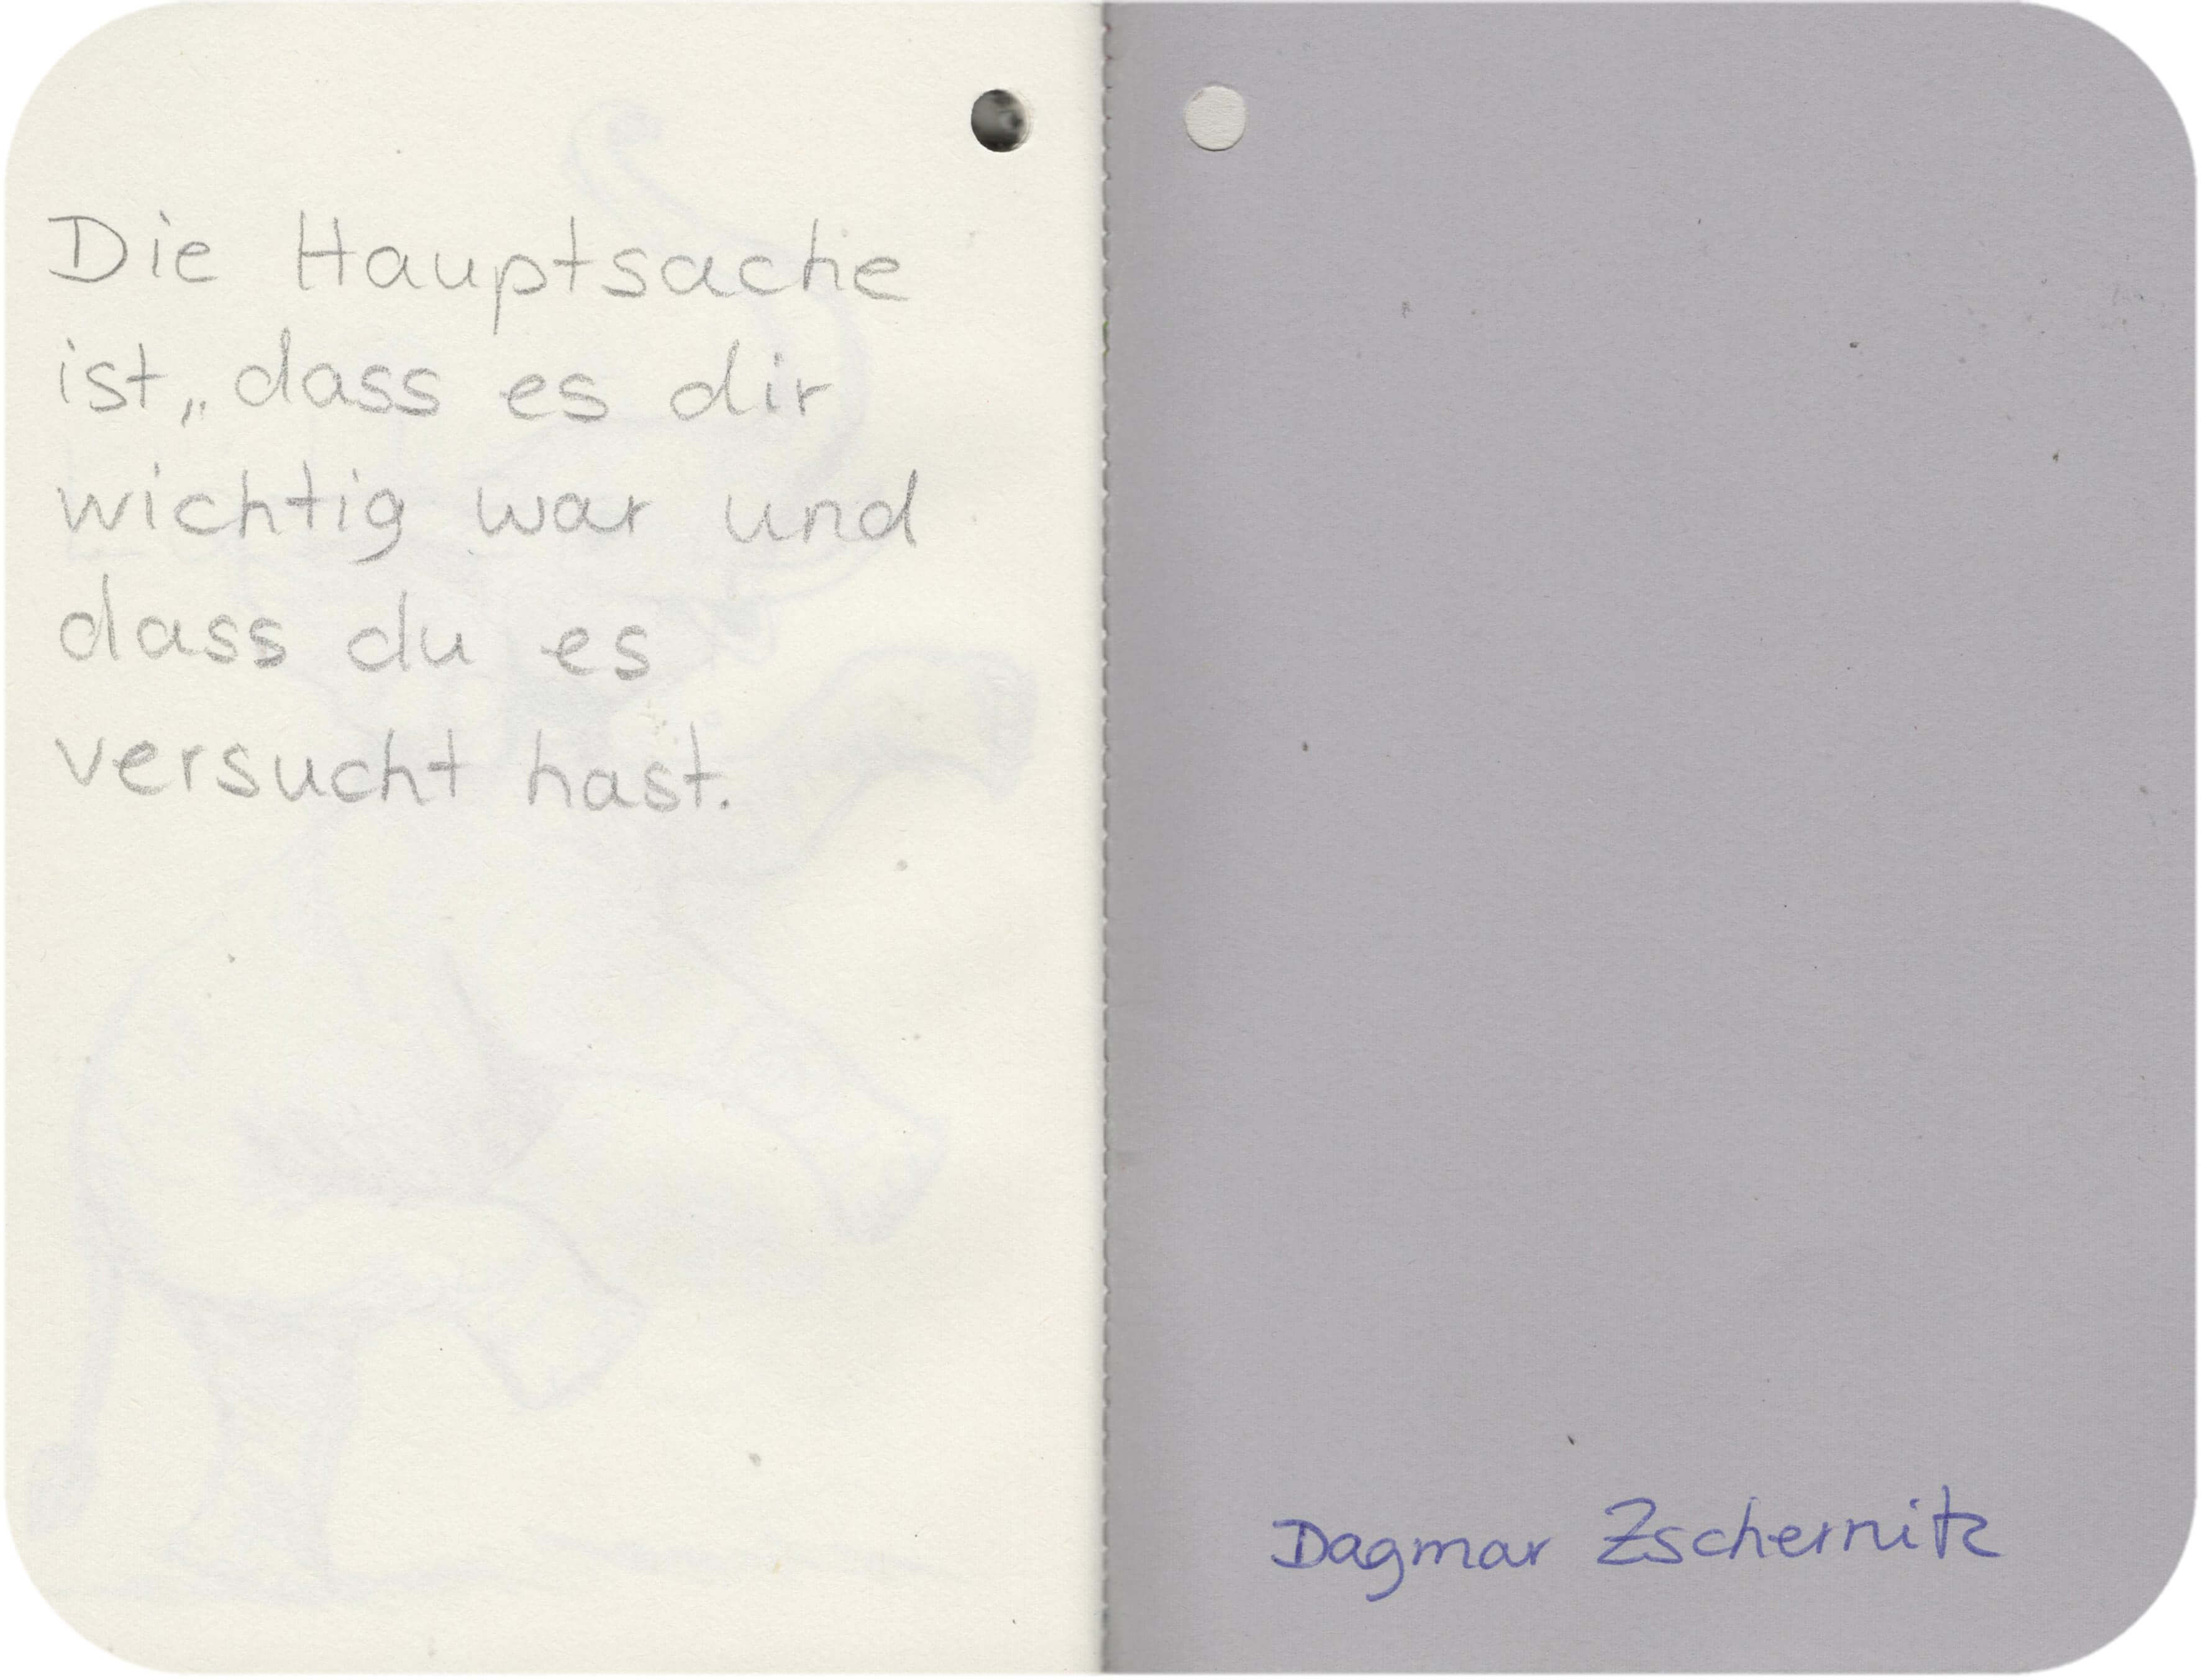 Die Hauptsache
ist„ dass es dir
wichtig war und
dass du es
versucht hast.
Dagmar Zschernitz